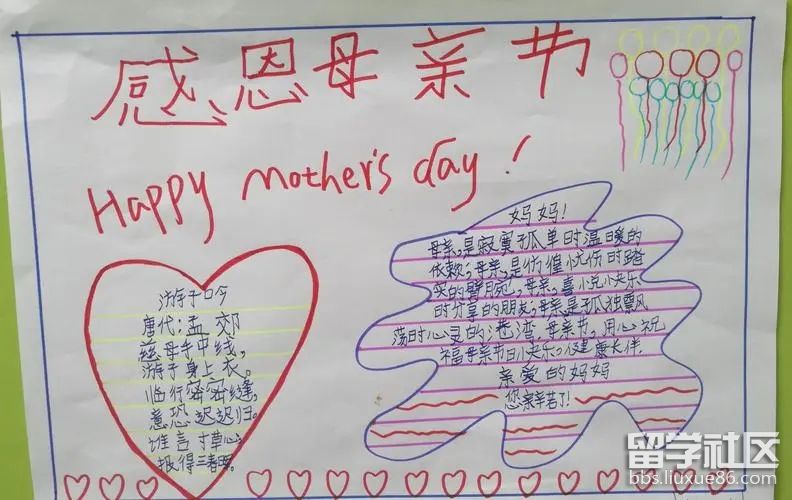 感恩母亲节
Happy mother's day!
游子吟
唐代:孟郊
慈母手中线,
游子身上衣。
临行密密缝,
意恐迟迟归。
谁言寸草心,
报得三春晖。
妈妈!
母亲,是寂寞孤单时温暖的
依赖,母亲,是伤惶忧伤时踏
实的臂腕,母亲,喜悦快乐
时分享的朋友,母亲是孤独飘风
荡时心灵的港湾,母亲节,用心祝
福母亲节日快乐。健康长伴.
亲爱的妈妈
您亲辛苦了!
留学社区
bbs.liuxue86.com